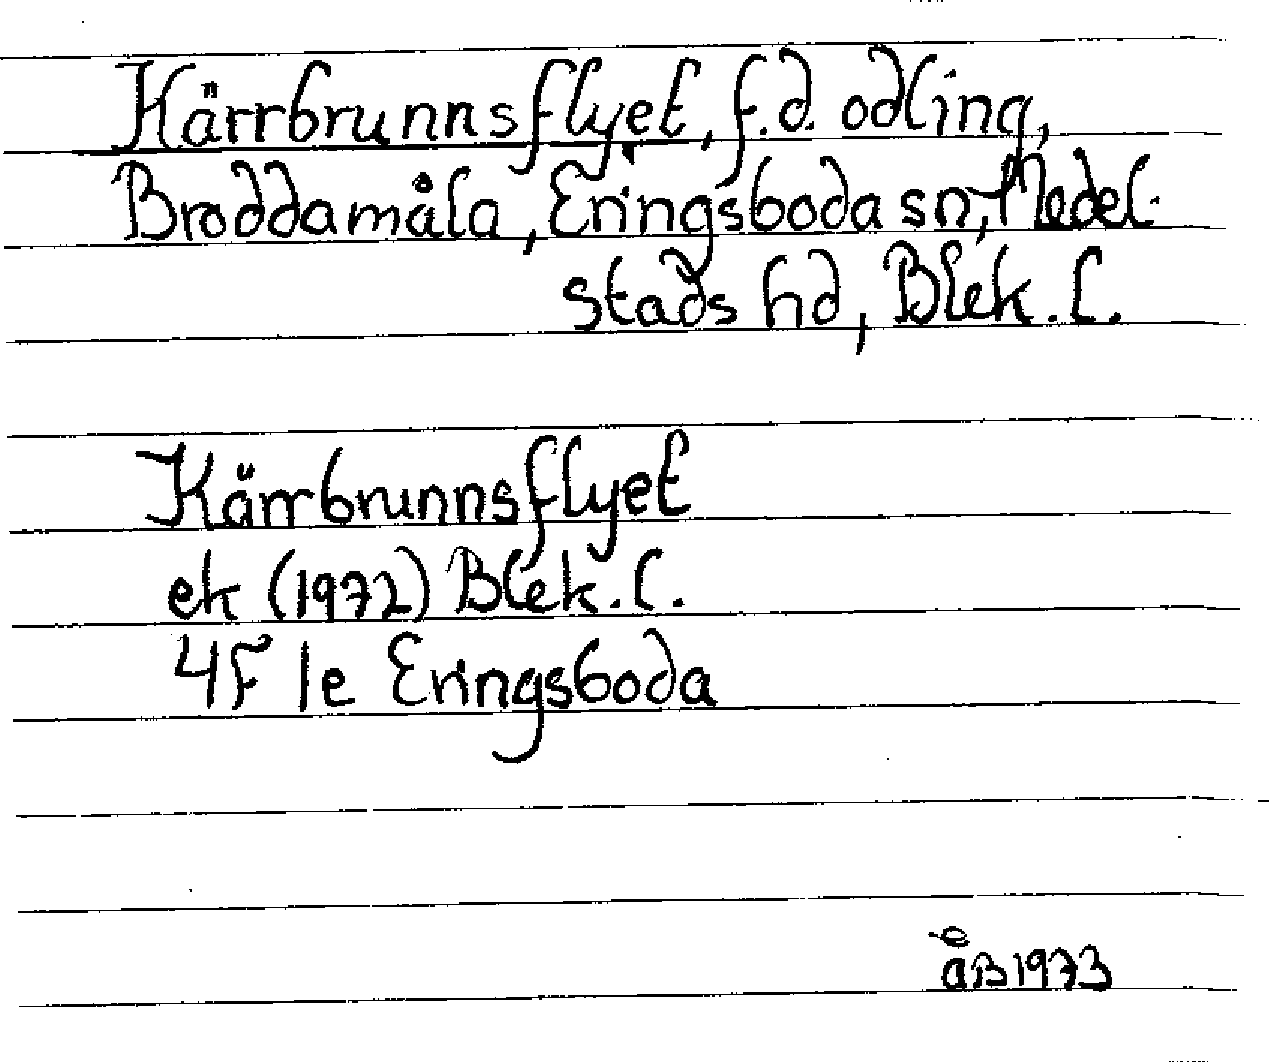 Kärrbrunnsflyet, f.d. odling,
Broddamåla, Eringsboda sn, Medel-
stads hd, Blek. l.
Kärrbrunnsflyet
ek (1972) Blek. l.
4F 1e Eringsboda
ÅB 1973